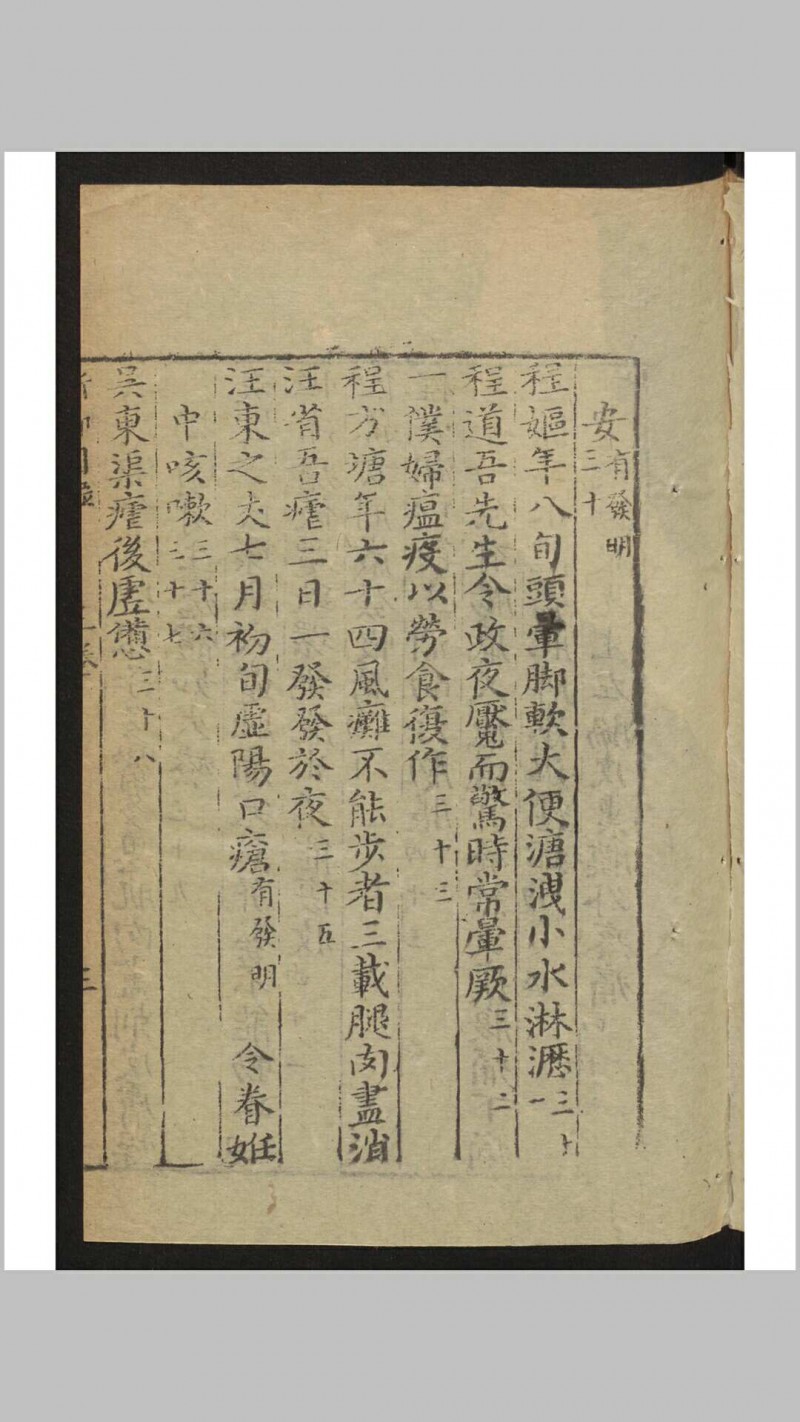 安有發明三十
程嫗年八旬頭暈脚軟大便溏洩小水淋瀝三十一
程道吾先生令政夜魘而驚時常暈厥三十二
一僕婦瘟疫以勞食復作三十三
程方塘年六十四風癱不能步者三載腿肉盡消
汪省吾瘧三日一發發於夜三十五
汪東之丈七月初旬虛陽口瘡有發明 令眷妊
中咳嗽三十六三十七
吳東渠瘧後虛憊三十八